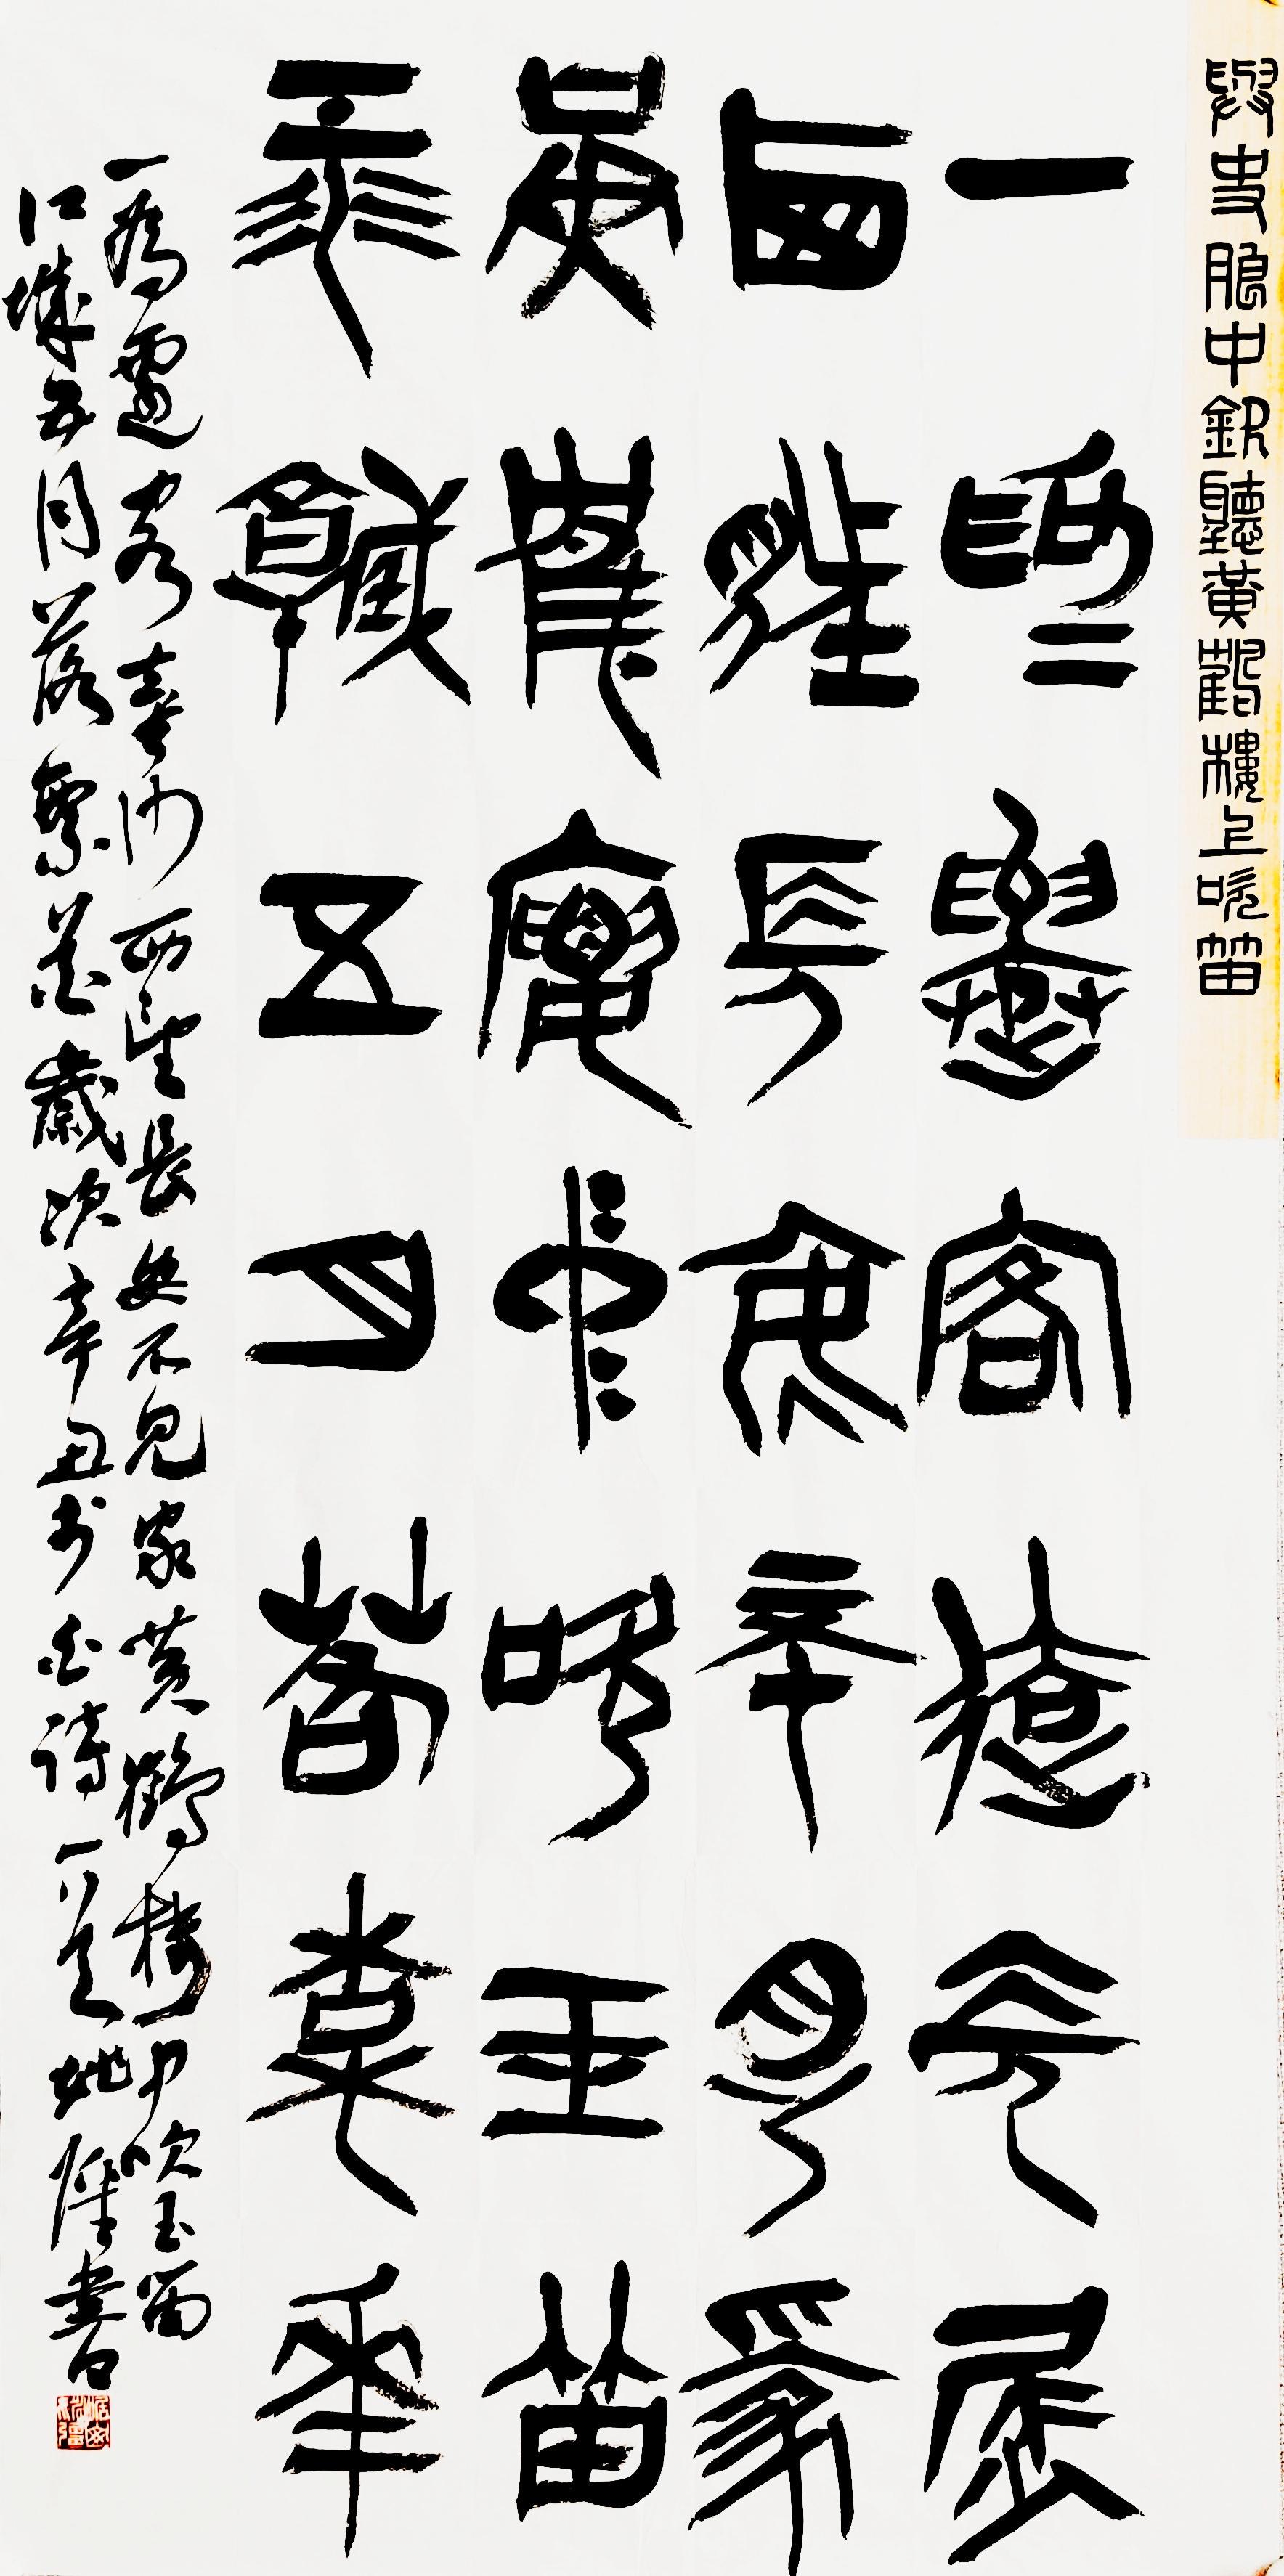 與史郎中欽聽黃鶴樓上吹笛
一為遷客去長沙
西望長安不見家
黃鶴樓中吹玉笛
江城五月落梅花
一為遷客去長沙西望長安不見家黃鶴樓中吹玉笛
江城五月落梅花歲次辛丑书白詩一首書